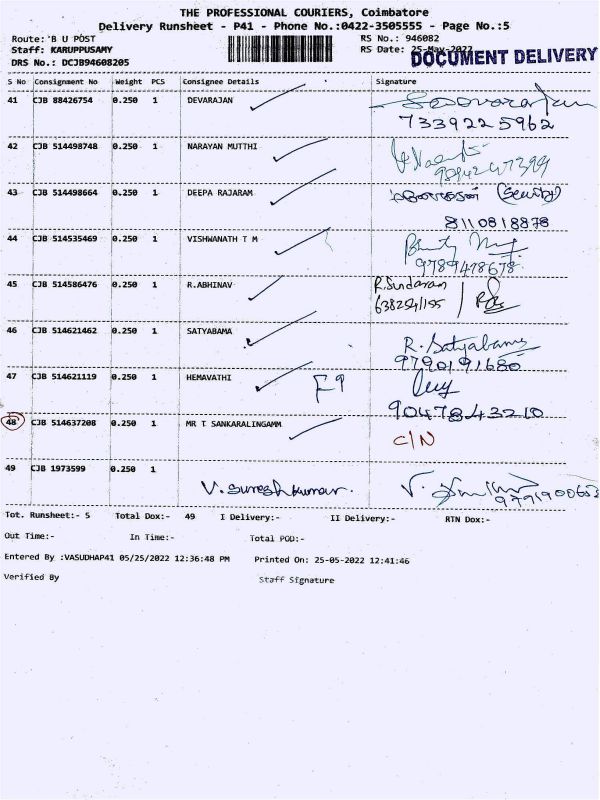 THE PROFESSIONAL COURIERS, Coimbatore
Delivery Runsheet - P41 - Phone No.:0422-3505555 - Page No.:5
Route:'B U POST RS No.: 946082
Staff: KARUPPUSAMY RS Date: 25-May-2022
DRS No.: DCJB94608205 DOCUMENT DELIVERY
S No Consignment No Weight PCS Consignee Details Signature
41 CJB 88426754 0.250 1 DEVARAJAN
7339225962
42 CJB 514498748 0.250 1 NARAYAN MUTTHI
43 CJB 514498664 0.250 1 DEEPA RAJARAM
8110818878
44 CJB 514535469 0.250 1 VISHWANATH T M
9789478678
45 CJB 514586476 0.250 1 R.ABHINAV R.Sundaram
46 CJB 514621462 0.250 1 SATYABAMA R. Satyabama
9790191680
47 CJB 514621119 0.250 1 HEMAVATHI F9
9047843210
48 CJB 514637208 0.250 1 MR T SANKARALINGAMM C/N
49 CJB 1973599 0.250 1
V. Sureshkumar.
Tot. Runsheet:- 5 Total Dox:- 49 I Delivery:- II Delivery:- RTN Dox:-
Out Time:- In Time:- Total POD:-
Entered By :VASUDHAP41 05/25/2022 12:36:48 PM Printed On: 25-05-2022 12:41:46
Verified By Staff Signature